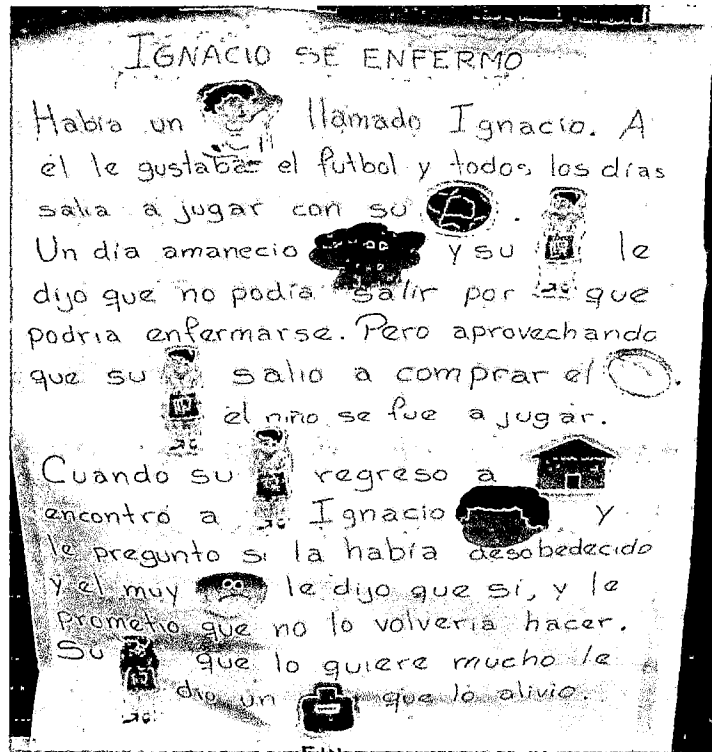 IGNACIO SE ENFERMO
Había un llamado Ignacio. A
él le gustaba el futbol y todos los días
salia a jugar con su .
Un día amanecio y su le
dijo que no podía salir por que
podria enfermarse. Pero aprovechando
que su salio a comprar el .
el niño se fue a jugar.
Cuando su regreso a
encontró a Ignacio y
le pregunto si la había desobedecido
y el muy le dijo que si, y le
prometio que no lo volveria hacer.
Su que lo quiere mucho le
dio un que lo alivio.